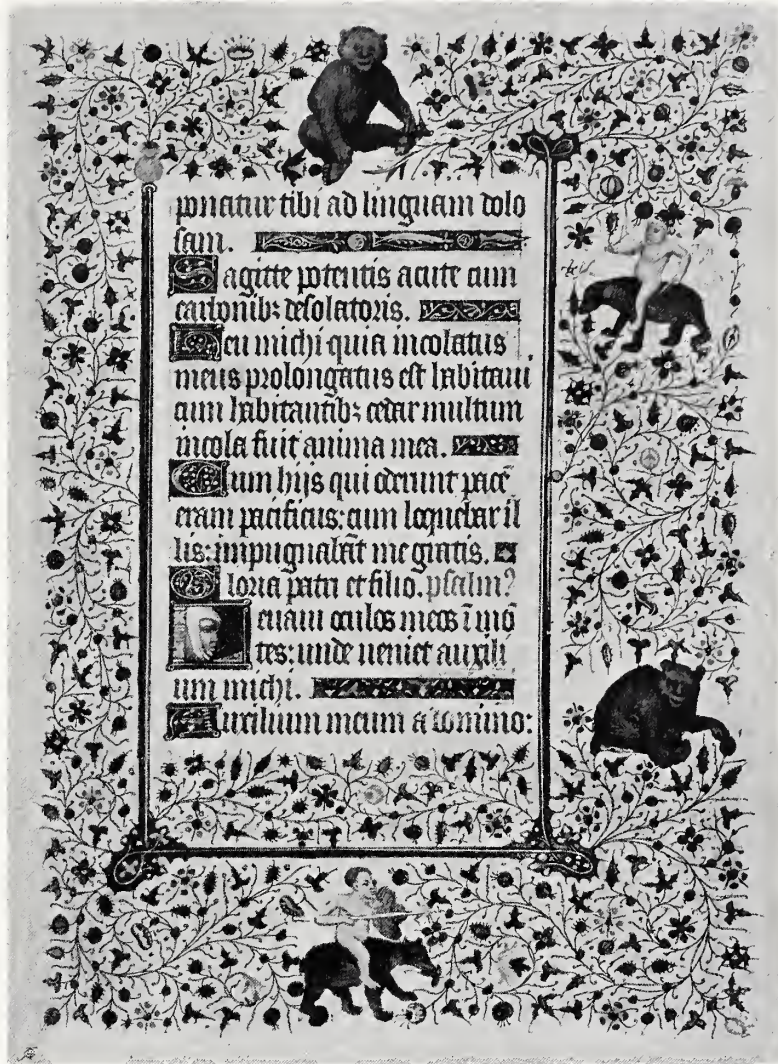 ponatur tibi ad linguam dolo
sam.
Sagitte potentis acute cum
carbonib; desolatoris.
Heu michi quia incolatus
meus prolongatus est habitaui
cum habitantib; cedar multum
incola fuit anima mea.
Cum hijs qui oderunt pacē
eram pacificus: cum loquebar il
lis: impugnabāt me gratis.
Gloria patri et filio. psalmꝰ
Leuaui oculos meos ī mō
tes: unde ueniet auxili
um michi.
Auxilium meum a domino: